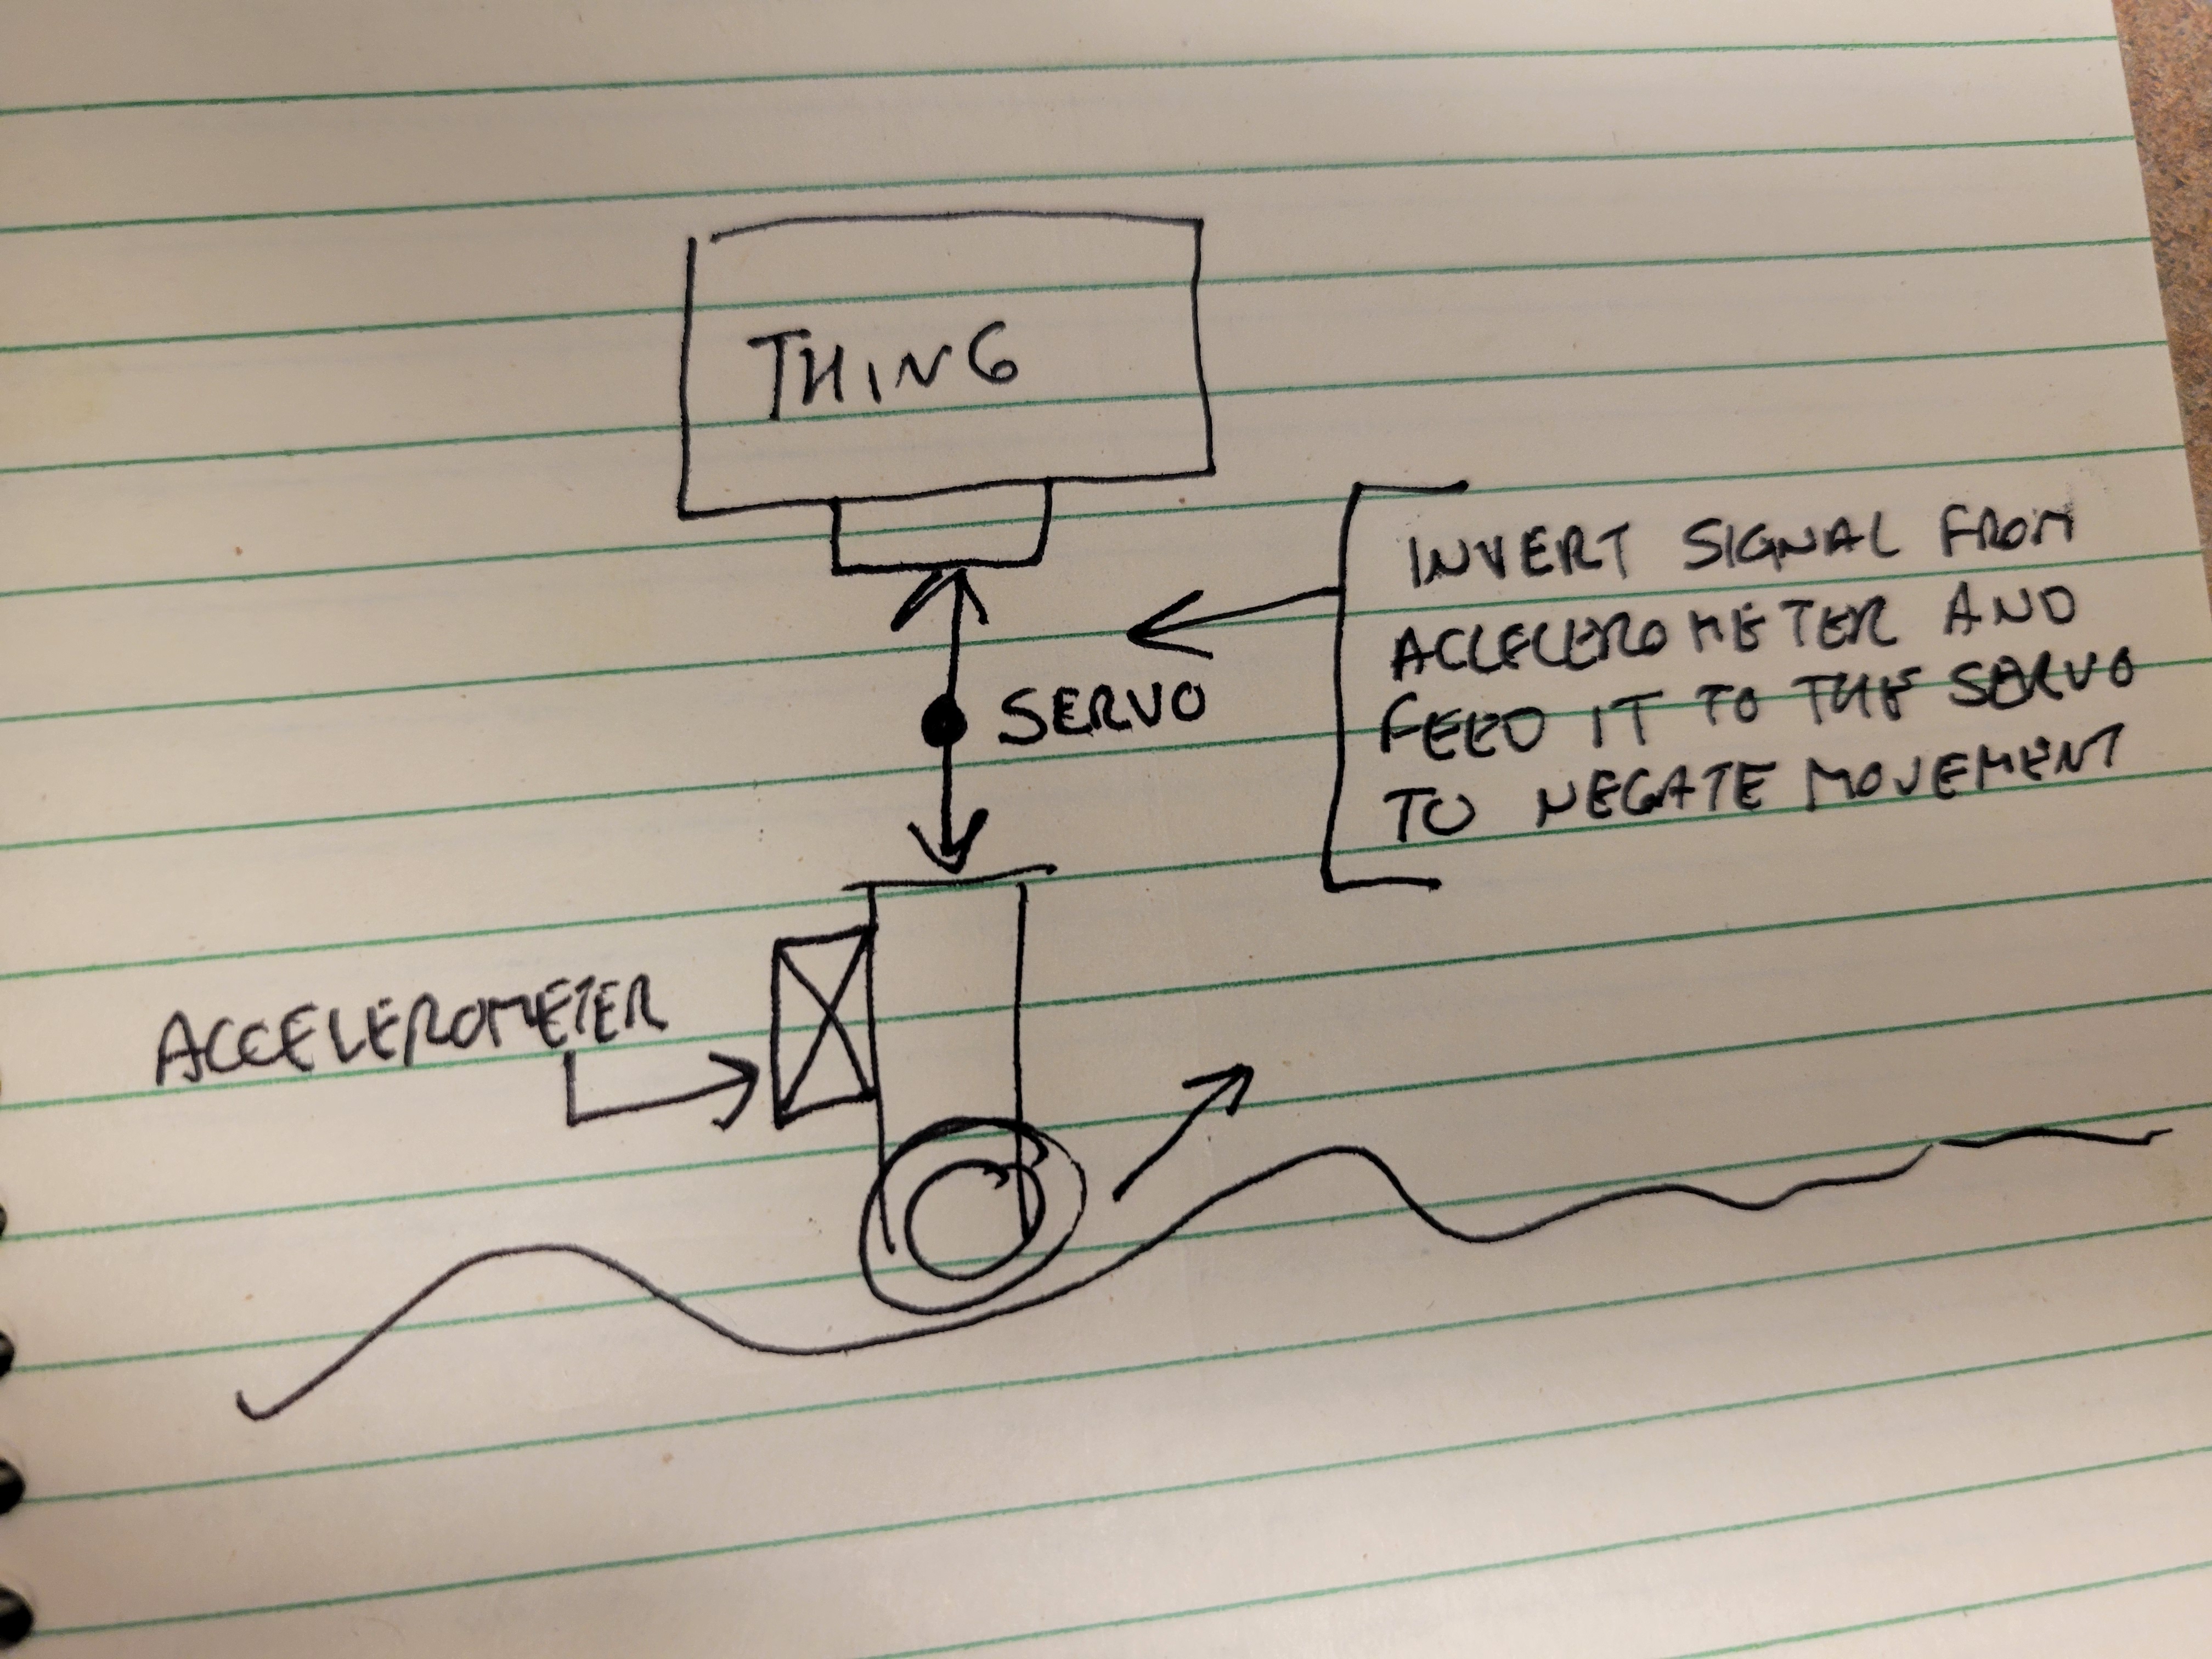 THING
INVERT SIGNAL FROM
ACCLELEROMETER AND
FEED IT TO THE SERVO
TO NEGATE MOVEMENT
SERVO
ACCELEROMETER